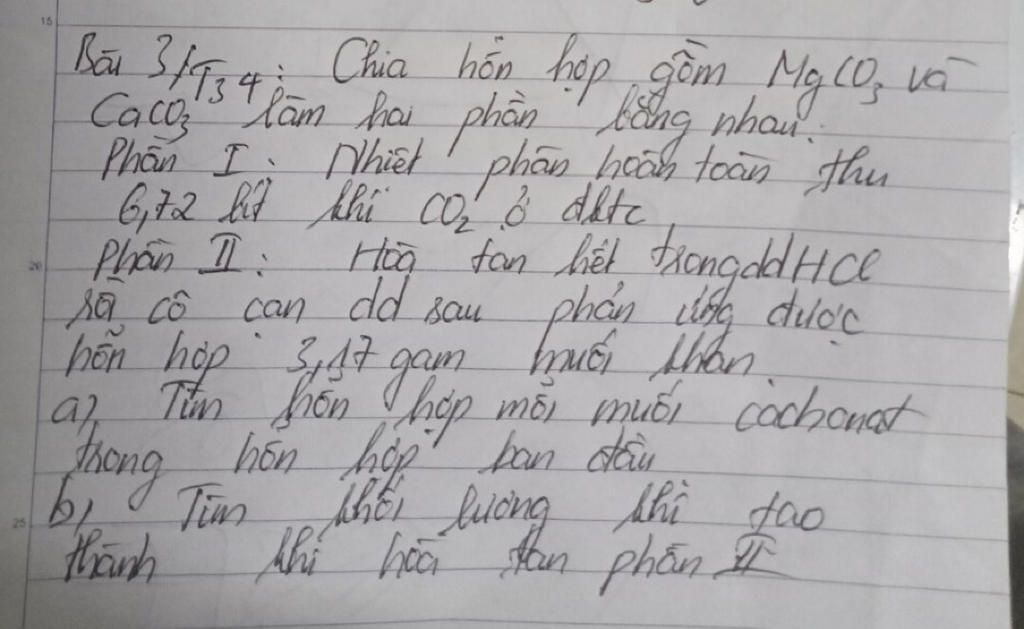 Bài 3/T34: Chia hỗn hợp gồm MgCO3 và
CaCO3 làm hai phần bằng nhau:
Phần I: Nhiệt phân hoàn toàn thu
6,72 lít khí CO2 ở đktc
Phần II: Hoà tan hết trong dd HCl
rồi cô cạn dd sau phản ứng được
hỗn hợp 3,17 gam muối khan
a), Tìm hỗn hợp mỗi muối cacbonat
trong hỗn hợp ban đầu
b), Tìm khối lượng khí tạo
thành khi hoà tan phần II